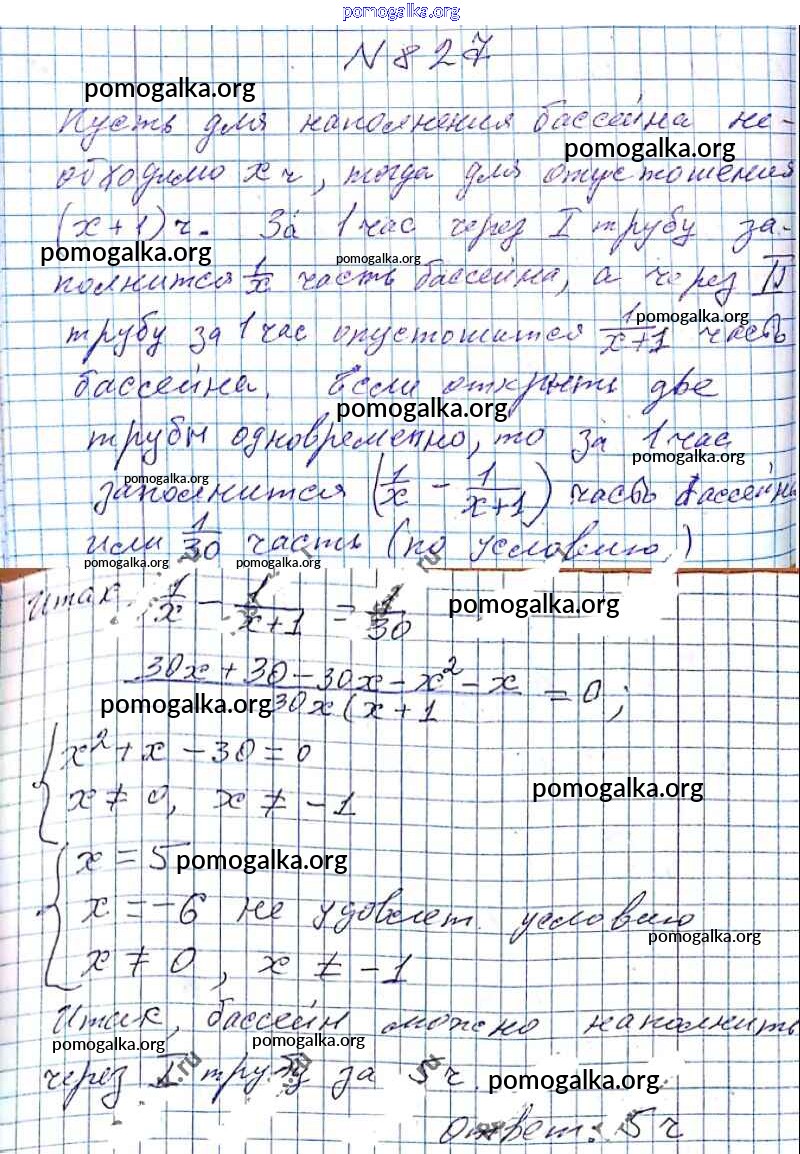 pomogalka.org
N 827
pomogalka.org
Пусть для наполнения бассейна не-
pomogalka.org
обходимо x ч, тогда для опустошения
(x+1) ч. За 1 час через I трубу за-
pomogalka.org pomogalka.org
полнится 1/x часть бассейна, а через II
pomogalka.org
трубу за 1 час опустошится 1/(x+1) часть
бассейна. Если открыть две
pomogalka.org
трубы одновременно, то за 1 час
pomogalka.org pomogalka.org
заполнится (1/x - 1/(x+1)) часть бассейна
или 1/30 часть (по условию)
pomogalka.org pomogalka.org pomogalka.org
Итак, 1/x - 1/(x+1) = 1/30
pomogalka.org
(30x + 30 - 30x - x² - x)/(30x(x+1) = 0;
pomogalka.org
{ x² + x - 30 = 0
x ≠ 0, x ≠ -1
pomogalka.org
{ x = 5
pomogalka.org
x = -6 не удовлет. условию
pomogalka.org
x ≠ 0, x ≠ -1
Итак, бассейн можно наполнить
pomogalka.org pomogalka.org pomogalka.org
через I трубу за 5 ч.
pomogalka.org
Ответ: 5 ч